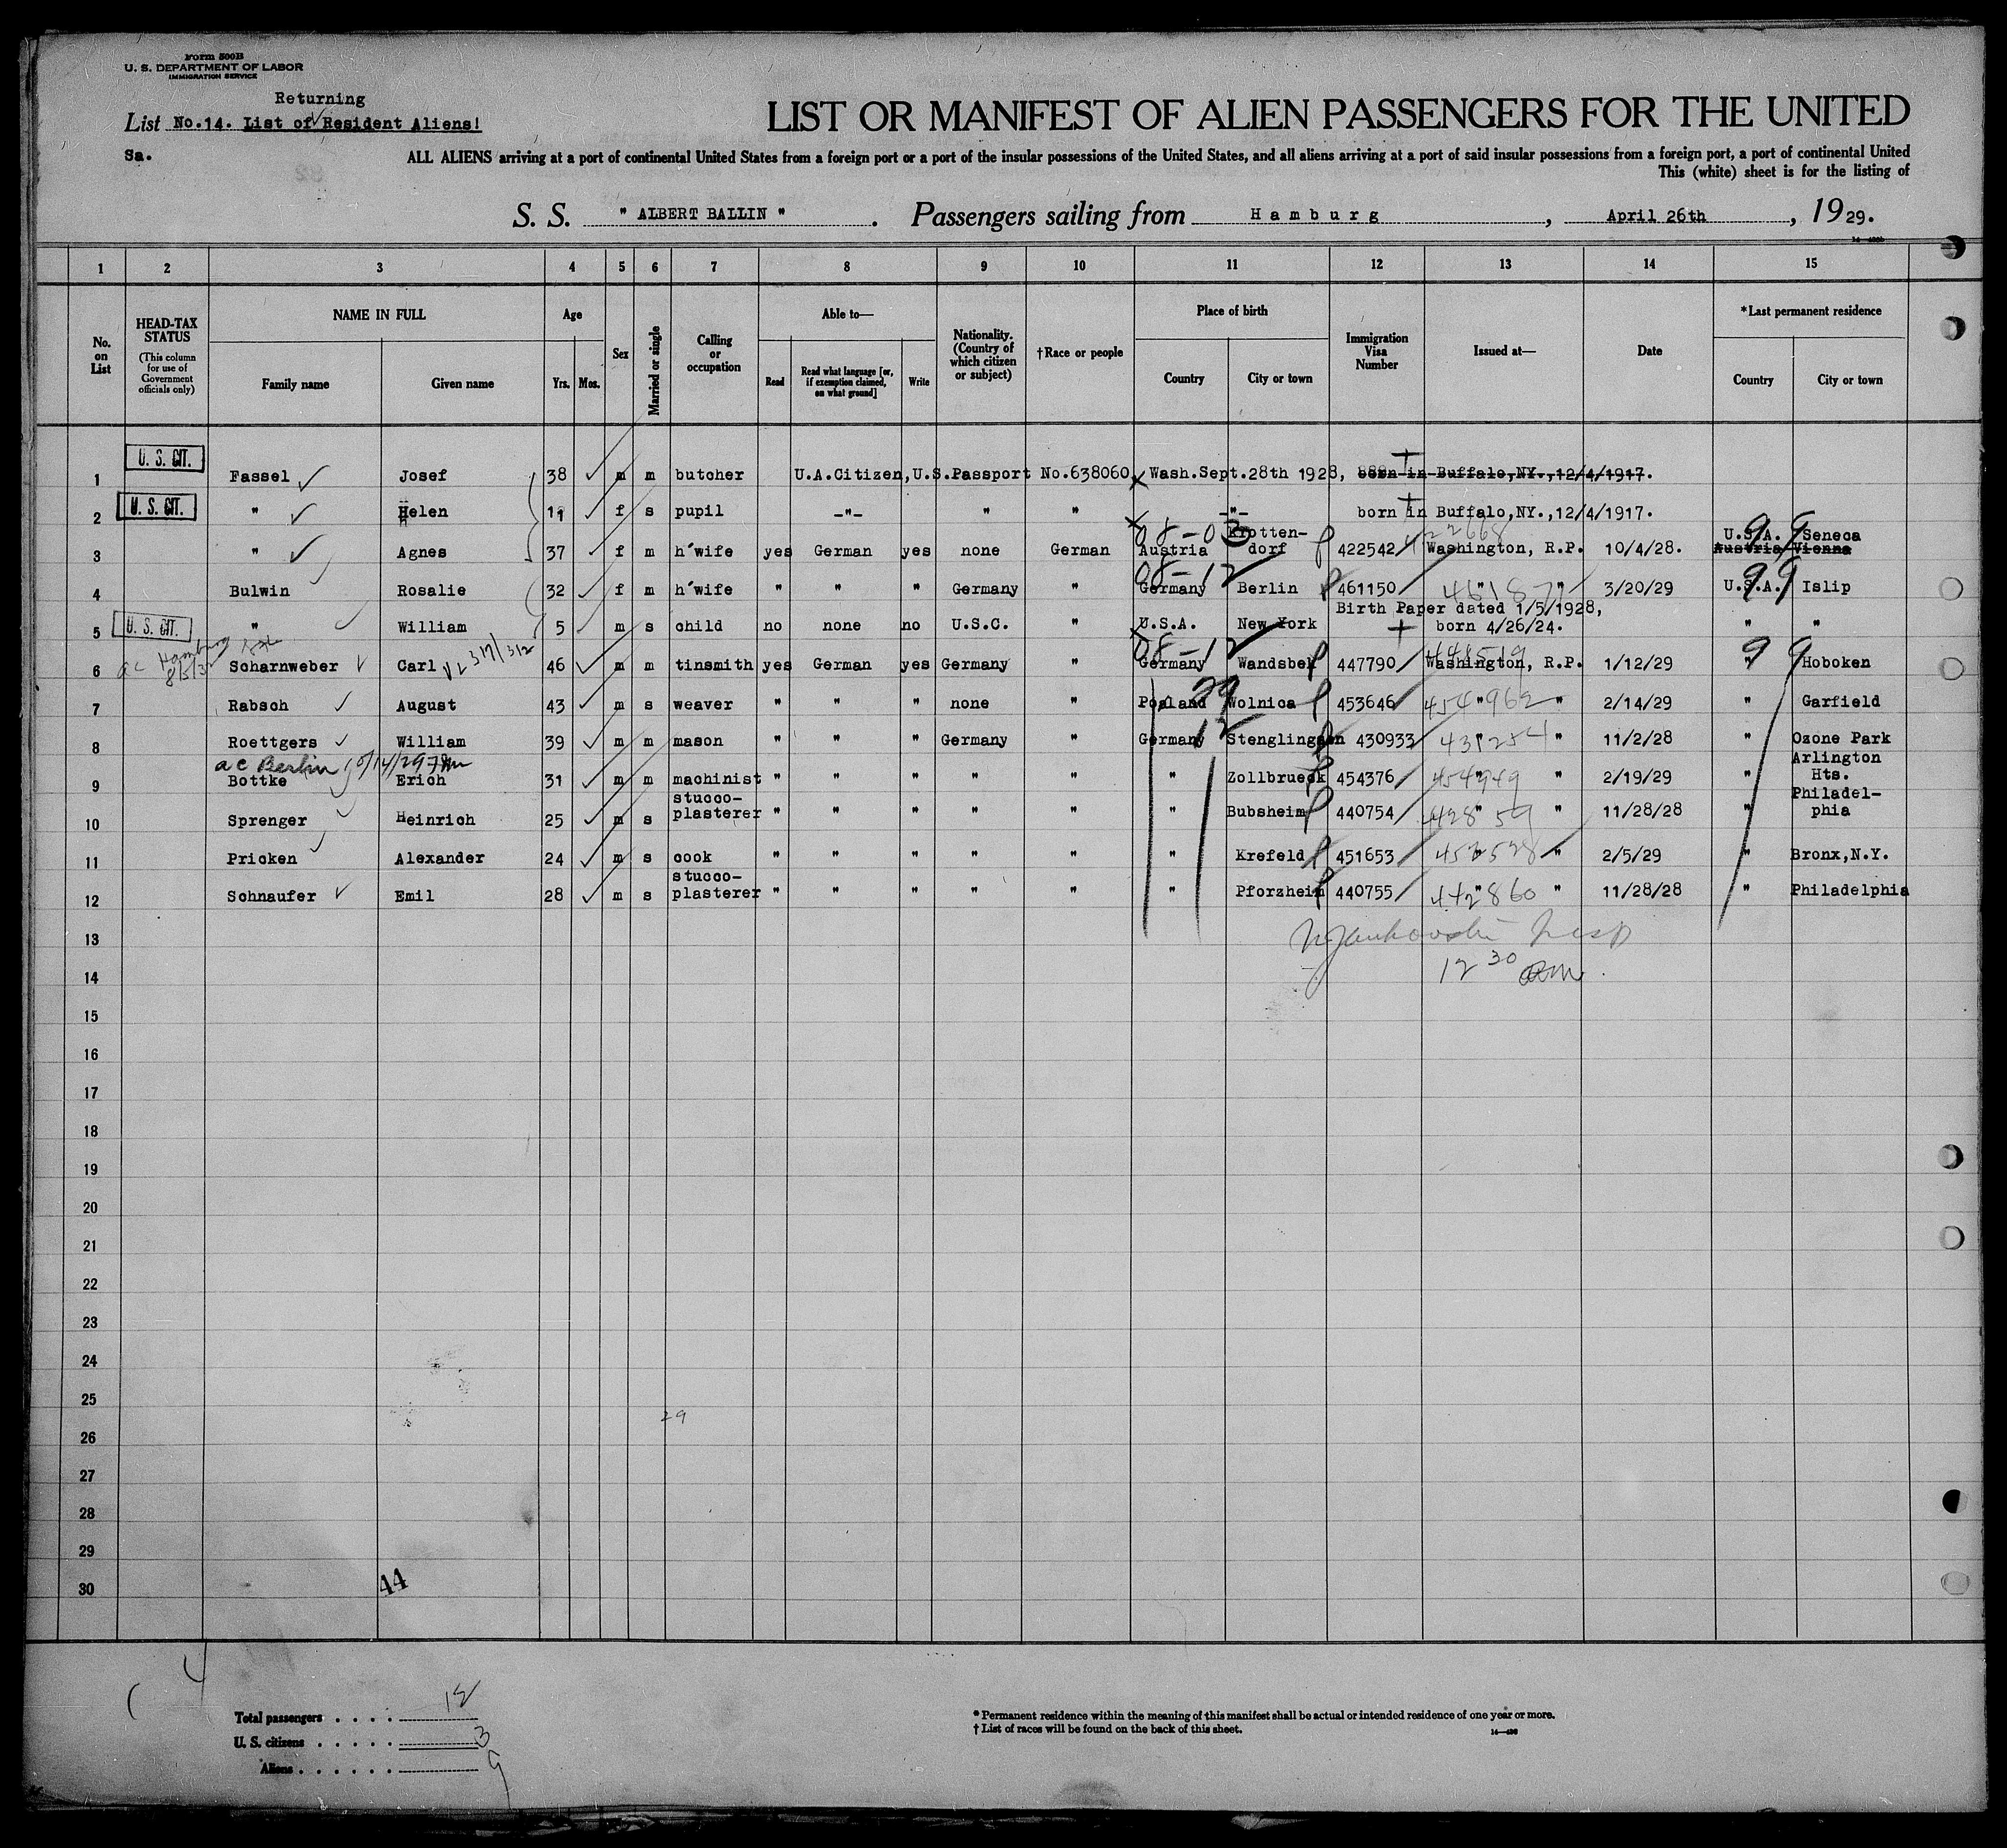 Form 500B
U. S. DEPARTMENT OF LABOR
IMMIGRATION SERVICE
Returning
List No.14. List of Resident Aliens!
LIST OR MANIFEST OF ALIEN PASSENGERS FOR THE UNITED
Sa.
ALL ALIENS arriving at a port of continental United States from a foreign port or a port of the insular possessions of the United States, and all aliens arriving at a port of said insular possessions from a foreign port, a port of continental United
This (white) sheet is for the listing of
S. S. " ALBERT BALLIN " . Passengers sailing from Hamburg , April 26th , 1929.
1 2 3 4 5 6 7 8 9 10 11 12 13 14 15
No. on List
HEAD-TAX STATUS (This column for use of Government officials only)
NAME IN FULL
Family name Given name
Age
Yrs. Mos.
Sex
Married or single
Calling or occupation
Able to—
Read Read what language [or, if exemption claimed, on what ground] Write
Nationality. (Country of which citizen or subject)
†Race or people
Place of birth
Country City or town
Immigration Visa Number
Issued at—
Date
*Last permanent residence
Country City or town
U. S. CIT.
1 Fassel Josef 38 m m butcher U.A.Citizen,U.S.Passport No.638060, Wash.Sept.28th 1928, born in Buffalo,NY.,12/4/1917.
U. S. CIT.
2 " Helen 11 f s pupil -"- " " -"- born in Buffalo,NY.,12/4/1917.
08-03 422668 99
3 " Agnes 37 f m h'wife yes German yes none German Austria Krotten-dorf 422542 Washington, R.P. 10/4/28. U.S.A. Seneca Austria Vienna
08-12 99
4 Bulwin Rosalie 32 f m h'wife " " " Germany " Germany Berlin 461150 " 3/20/29 U.S.A. Islip
Birth Paper dated 1/5/1928,
U. S. CIT.
5 " William 5 m s child no none no U.S.C. " U.S.A. New York born 4/26/24. " "
ac Hamburg
08-12 448519 99
6 Scharnweber Carl VL 317/312 46 m m tinsmith yes German yes Germany " Germany Wandsbek 447790 Washington, R.P. 1/12/29 " Hoboken
29
7 Rabsch August 43 m s weaver " " " none " Poaland Wolnica 453646 454962 " " 2/14/29 " Garfield
12
8 Roettgers William 39 m m mason " " " Germany " Germany Stenglingsen 430933 431254 " 11/2/28 " Ozone Park
ac Berlin
9 Bottke Erich 31 m m machinist " " " " " " Zollbrueck 454376 454949 " " 2/19/29 " Arlington Hts.
10 Sprenger Heinrich 25 m s stucco-plasterer " " " " " " Bubsheim 440754 442859 " " 11/28/28 " Philadel-phia
11 Pricken Alexander 24 m s cook " " " " " " Krefeld 451653 452528 " 2/5/29 " Bronx,N.Y.
12 Schnaufer Emil 28 m s stucco-plasterer " " " " " " Pforzheim 440755 442860 " " 11/28/28 " Philadelphia
13
14 12 30
15
16
17
18
19
20
21
22
23
24
25
29
26
27
28
29
30
44
Total passengers . . . . 12
U. S. citizens . . . . . 3
Aliens . . . . . . 9
* Permanent residence within the meaning of this manifest shall be actual or intended residence of one year or more.
† List of races will be found on the back of this sheet.